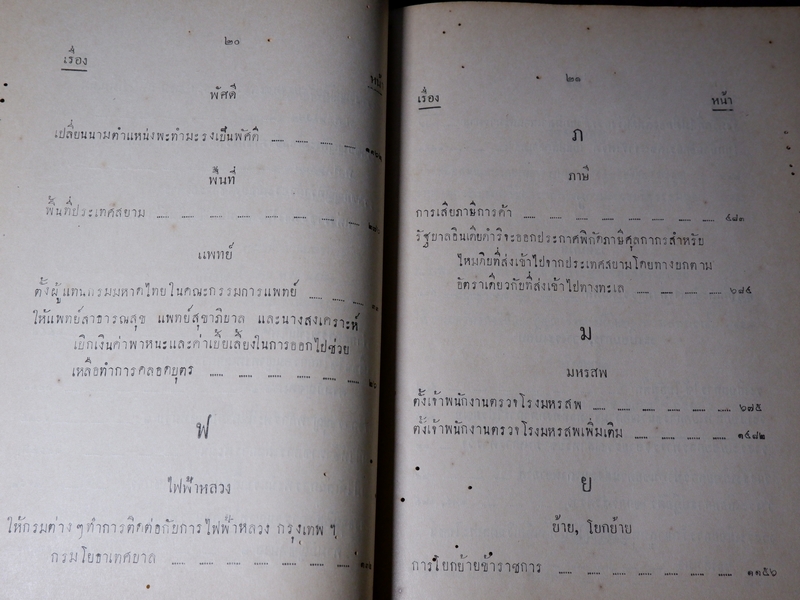 ๒๐
เรื่อง
หน้า
พัศดี
เปลี่ยนนามตำแหน่งพะทำมะรงเป็นพัศดี
พื้นที่
พื้นที่ประเทศสยาม
แพทย์
ตั้งผู้แทนกรมมหาดไทยในคณะกรรมการแพทย์
ให้แพทย์สาธารณสุข แพทย์สุขาภิบาล และนางสงเคราะห์
เบิกเงินค่าพาหนะและค่าเบี้ยเลี้ยงในการออกไปช่วย
เหลือทำการคลอดบุตร
ฟ
ไฟฟ้าหลวง
ให้กรมต่าง ๆ ทำการติดต่อกับการไฟฟ้าหลวง กรุงเทพ ฯ
กรมโยธาเทศบาล
๒๑
เรื่อง หน้า
ภ
ภาษี
การเสียภาษีการค้า
รัฐบาลอินเดียดำริจะออกประกาศพิกัดภาษีศุลกากรสำหรับ
ไหมดิบที่ส่งเข้าไปจากประเทศสยามโดยทางบกตาม
อัตราเดียวกับที่ส่งเข้าไปทางทะเล
ม
มหรสพ
ตั้งเจ้าพนักงานตรวจโรงมหรสพ ...... ๖๗๕
ตั้งเจ้าพนักงานตรวจโรงมหรสพเพิ่มเติม
ย
ย้าย, โยกย้าย
การโยกย้ายข้าราชการ ...... ๑๑๕๖